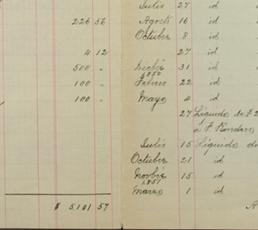 Julio 27 id
226 56 Agosto 16 id
Octubre 8 id
4 12 27 id
500 - 31 id
1850
100 - Febrero 22 id
100 - Mayo 4 id
27 Liquido de
Julio 15 Liquido de
Octubre 21 id
Novbre 15 id
1851
Marzo 1 id
$ 5,101 57